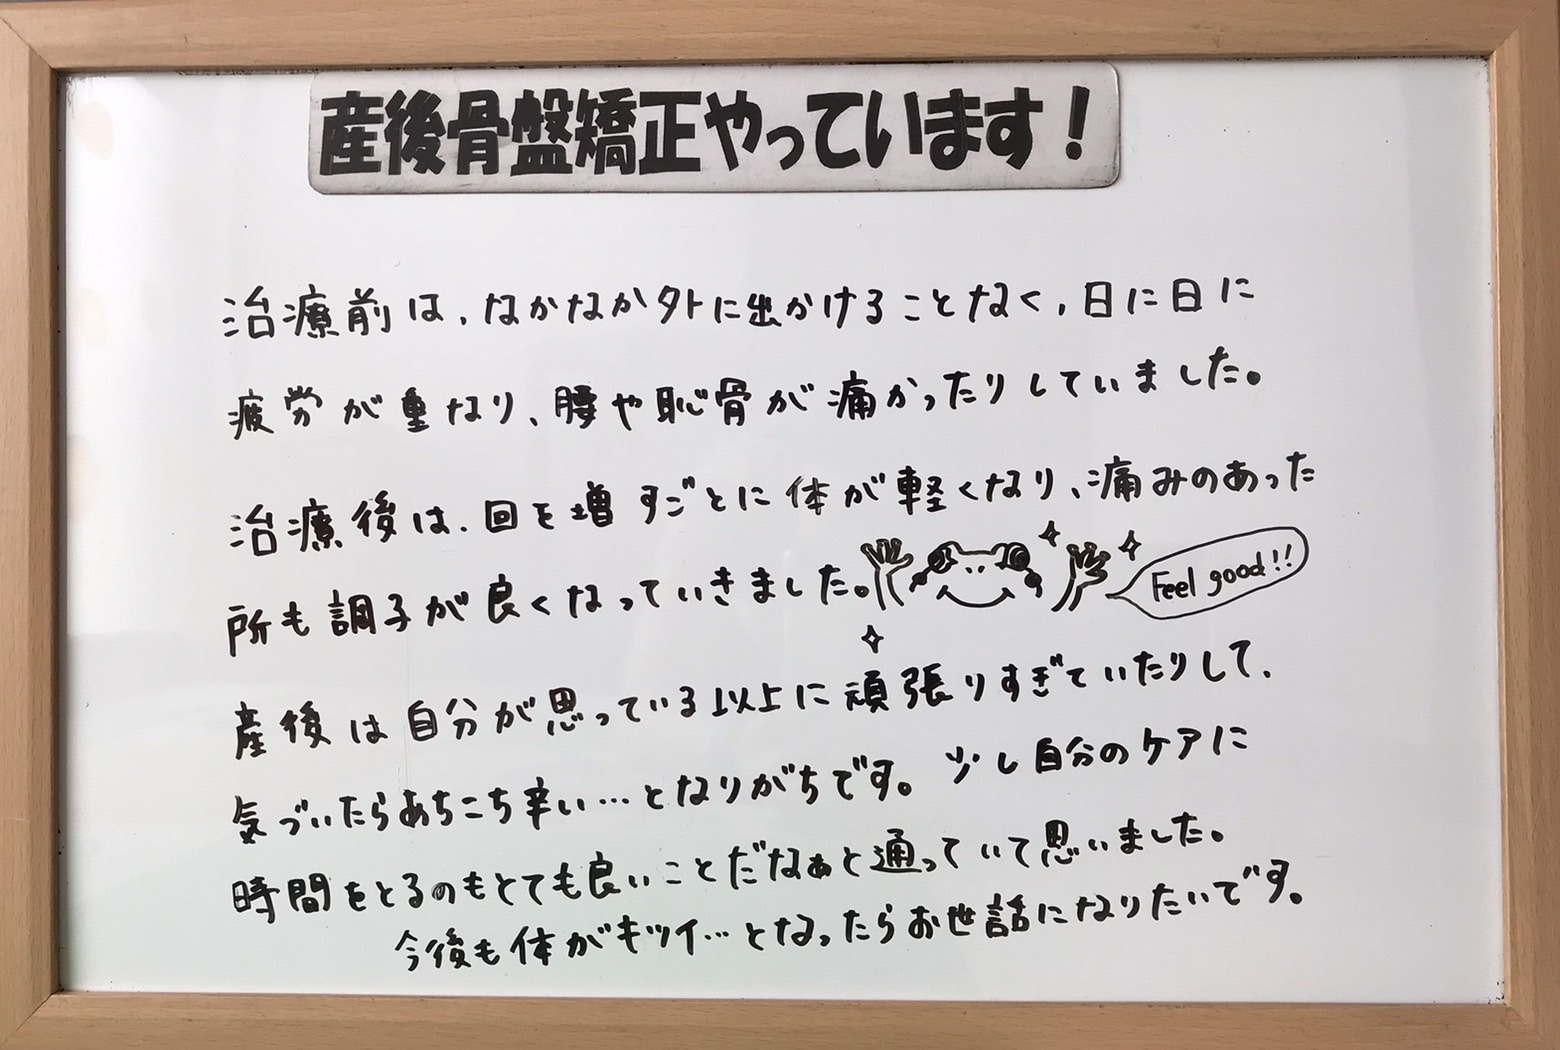 産後骨盤矯正やっています！
治療前は、なかなか外に出かけることなく、日に日に
疲労が重なり、腰や恥骨が痛かったりしていました。
治療後は、回を増すごとに体が軽くなり、痛みのあった
所も調子が良くなっていきました。
Feel good!!
産後は自分が思っている以上に頑張りすぎていたりして、
気づいたらあちこち辛い…となりがちです。少し自分のケアに
時間をとるのもとても良いことだなぁと通っていて思いました。
今後も体がキツイ…となったらお世話になりたいです。